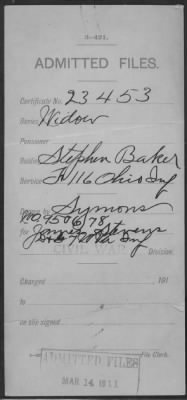 3-421.
ADMITTED FILES.
Certificate No. 23453
Series Widow
Pensioner
Soldier Stephen Baker
Service F 116 Ohio Inf
Drawn by Symons
WO 750678
for James Stevens
Inf
CIVIL WAR
Division.
Charged 191
to
on slip signed
File Clerk.
ADMITTED FILES
MAR 14 1911